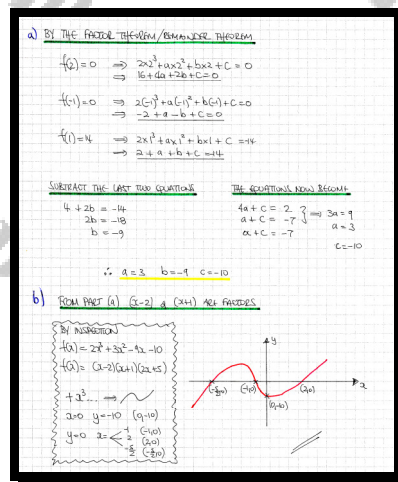 a) BY THE FACTOR THEOREM / REMAINDER THEOREM
f(2)=0 ⇒ 2×2³+a×2²+b×2+C=0
⇒ 16+4a+2b+C=0
f(-1)=0 ⇒ 2(-1)³+a(-1)²+b(-1)+C=0
⇒ -2+a-b+C=0
f(1)=14 ⇒ 2×1³+a×1²+b×1+C=-14
⇒ 2+a+b+C=-14
SUBTRACT THE LAST TWO EQUATIONS
4+2b=-14
2b=-18
b=-9
THE EQUATIONS NOW BECOME
4a+C=2
a+C=-7 } ⇒ 3a=9
a=3
a+C=-7
C=-10
∴ a=3 b=-9 C=-10
b) FROM PART (a) (x-2) & (x+1) ARE FACTORS
BY INSPECTION
f(x)=2x³+3x²-9x-10
f(x)=(x-2)(x+1)(2x+5)
+x³... ⇒
x=0 y=-10 (0,-10)
y=0 x= -1 (-1,0)
2 (2,0)
-5/2 (-5/2,0)
y
x
(-5/2,0) (-1,0) (2,0)
(0,-10)